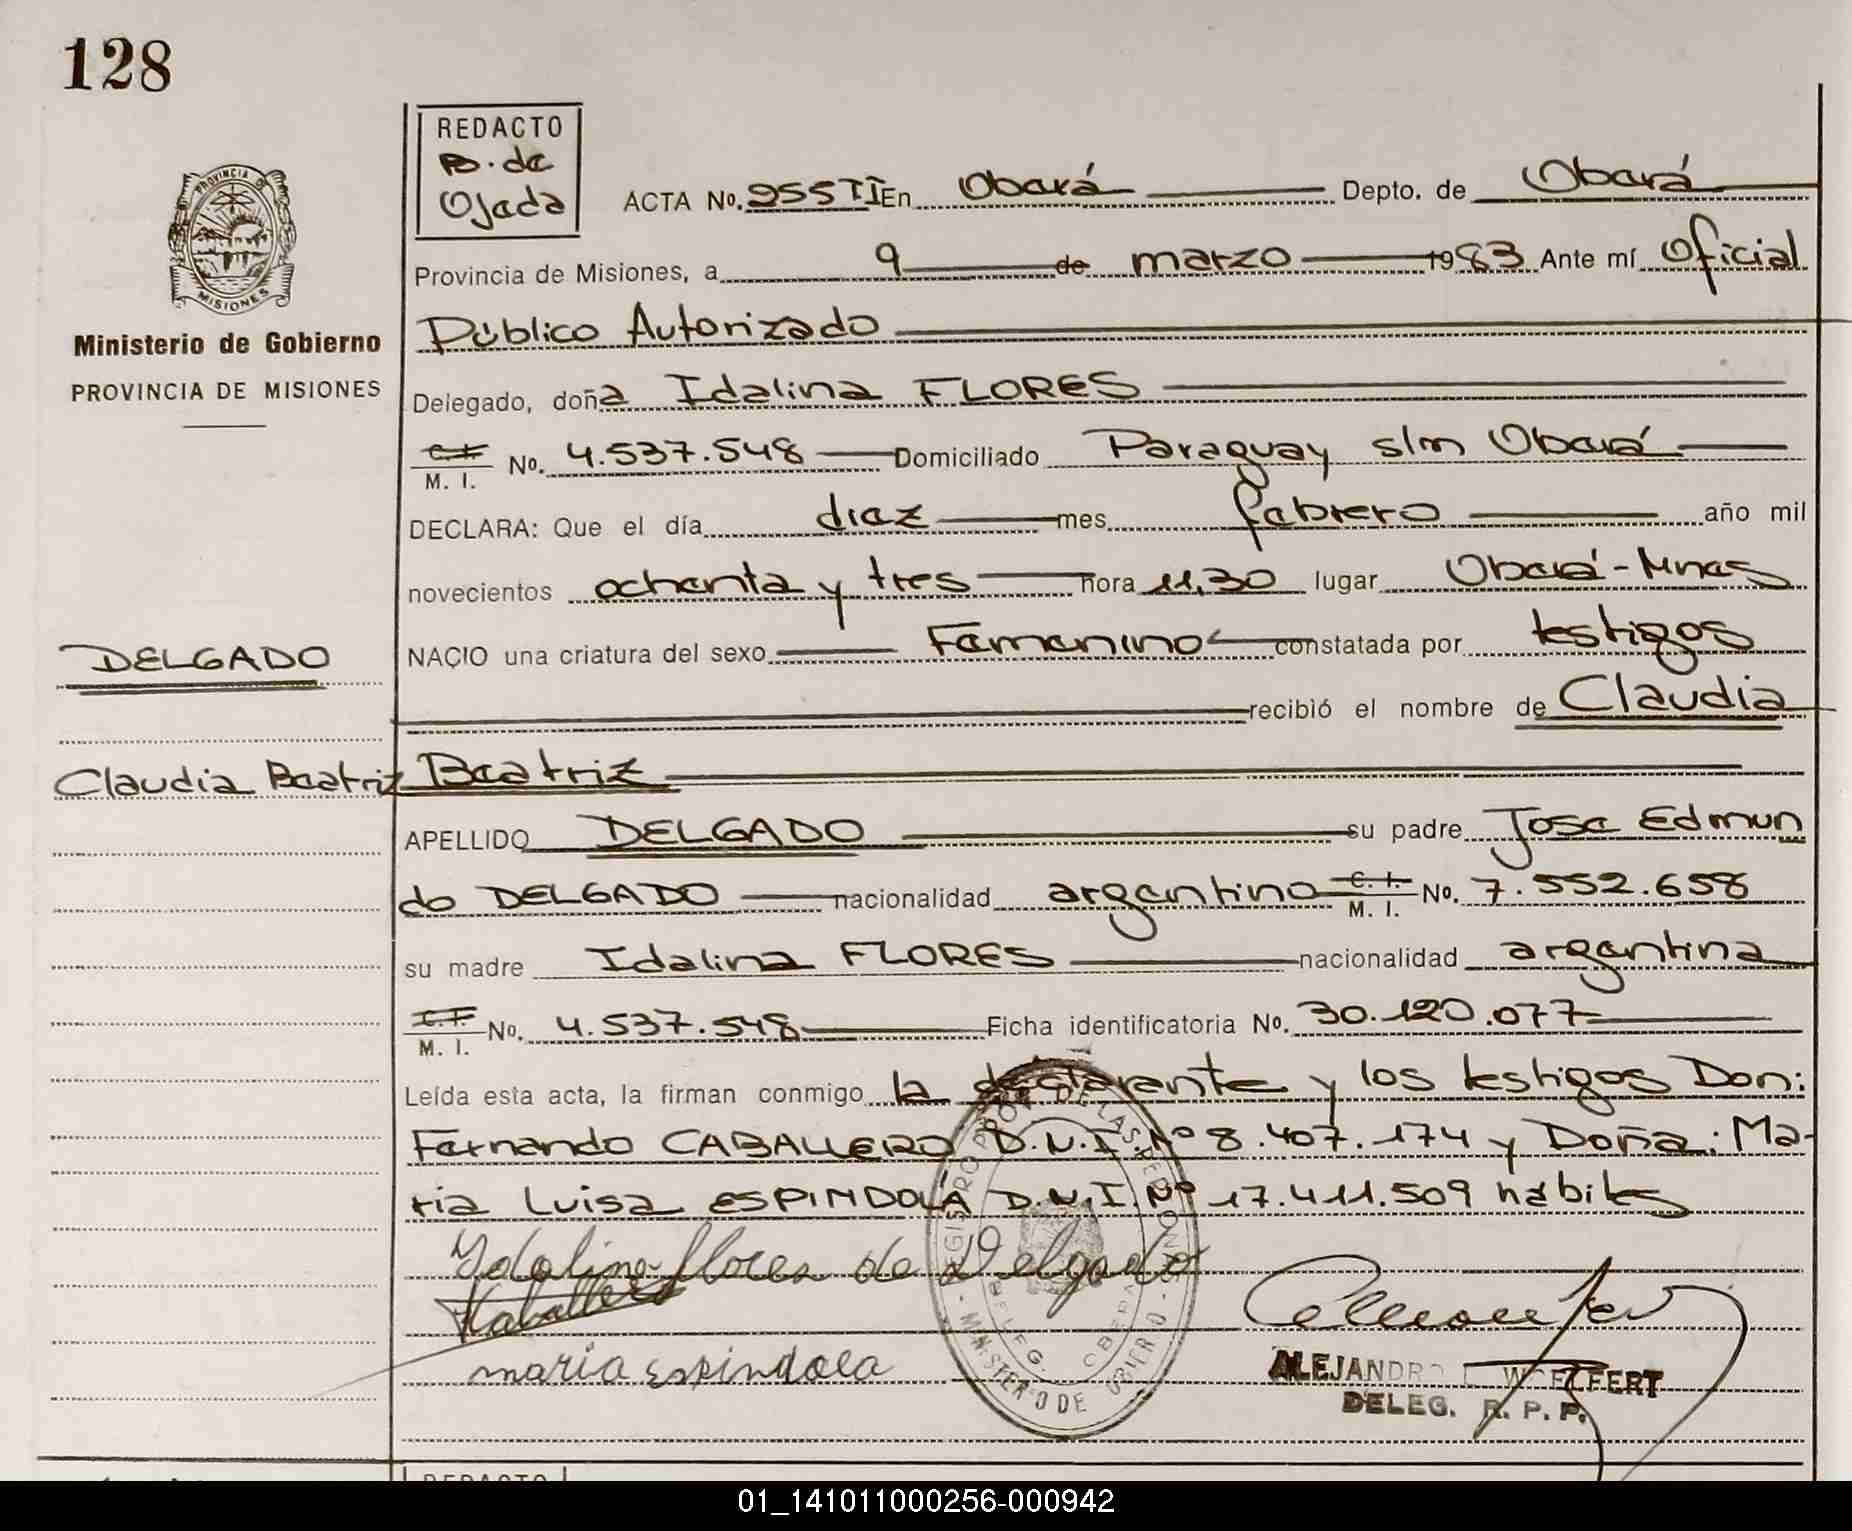 128
REDACTO
B. de
Ojeda
PROVINCIA DE
MISIONES
Ministerio de Gobierno
PROVINCIA DE MISIONES
ACTA No. 255 TI En Oberá Depto. de Oberá
Provincia de Misiones, a 9 de marzo 1983 Ante mí Oficial
Público Autorizado
Delegado, doña Idalina FLORES
C.I.
M. I. No. 4.537.548 Domiciliado Paraguay s/n Oberá
DECLARA: Que el día diez mes febrero año mil
novecientos ochenta y tres hora 11,30 lugar Oberá-Mnes
DELGADO
NACIO una criatura del sexo Femenino constatada por testigos
recibió el nombre de Claudia
Claudia Beatriz
Beatriz
APELLIDO DELGADO su padre Jose Edmun
do DELGADO nacionalidad argentino C. I.
M. I. No. 7.552.658
su madre Idalina FLORES nacionalidad argentina
C.I.
M. I. No. 4.537.548 Ficha identificatoria No. 30.120.077
Leída esta acta, la firman conmigo la declarante y los testigos Don:
Fernando CABALLERO D.N.I. Nº 8.407.174 y Doña: Ma-
ria Luisa ESPINDOLA D.N.I. Nº 17.411.509 hábiles
Ydalina flores de Delgado
Caballero
maria Espindola
REGISTRO PROV. DE LAS PERSONAS
MINISTERIO DE GOBIERNO
DELEG. OBERA
ALEJANDRO WELFERT
DELEG. R. P. P.
REDACTO
01_141011000256-000942